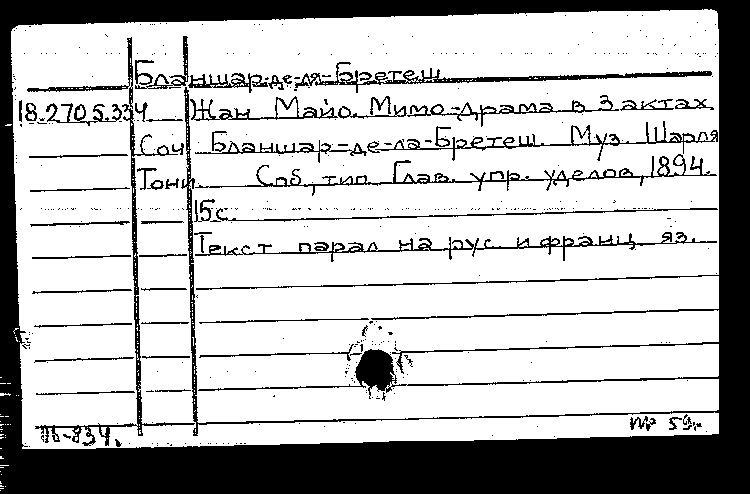 Бланшар-де-ля-Бретеш
18.270.5.334 Жан Майо. Мимо-драма в 3 актах.
Соч. Бланшар-де-ла-Бретеш. Муз. Шарля
Тони. Спб., тип. Глав. упр. уделов, 1894.
15с.
Текст парал на рус. и франц. яз.
П-834.